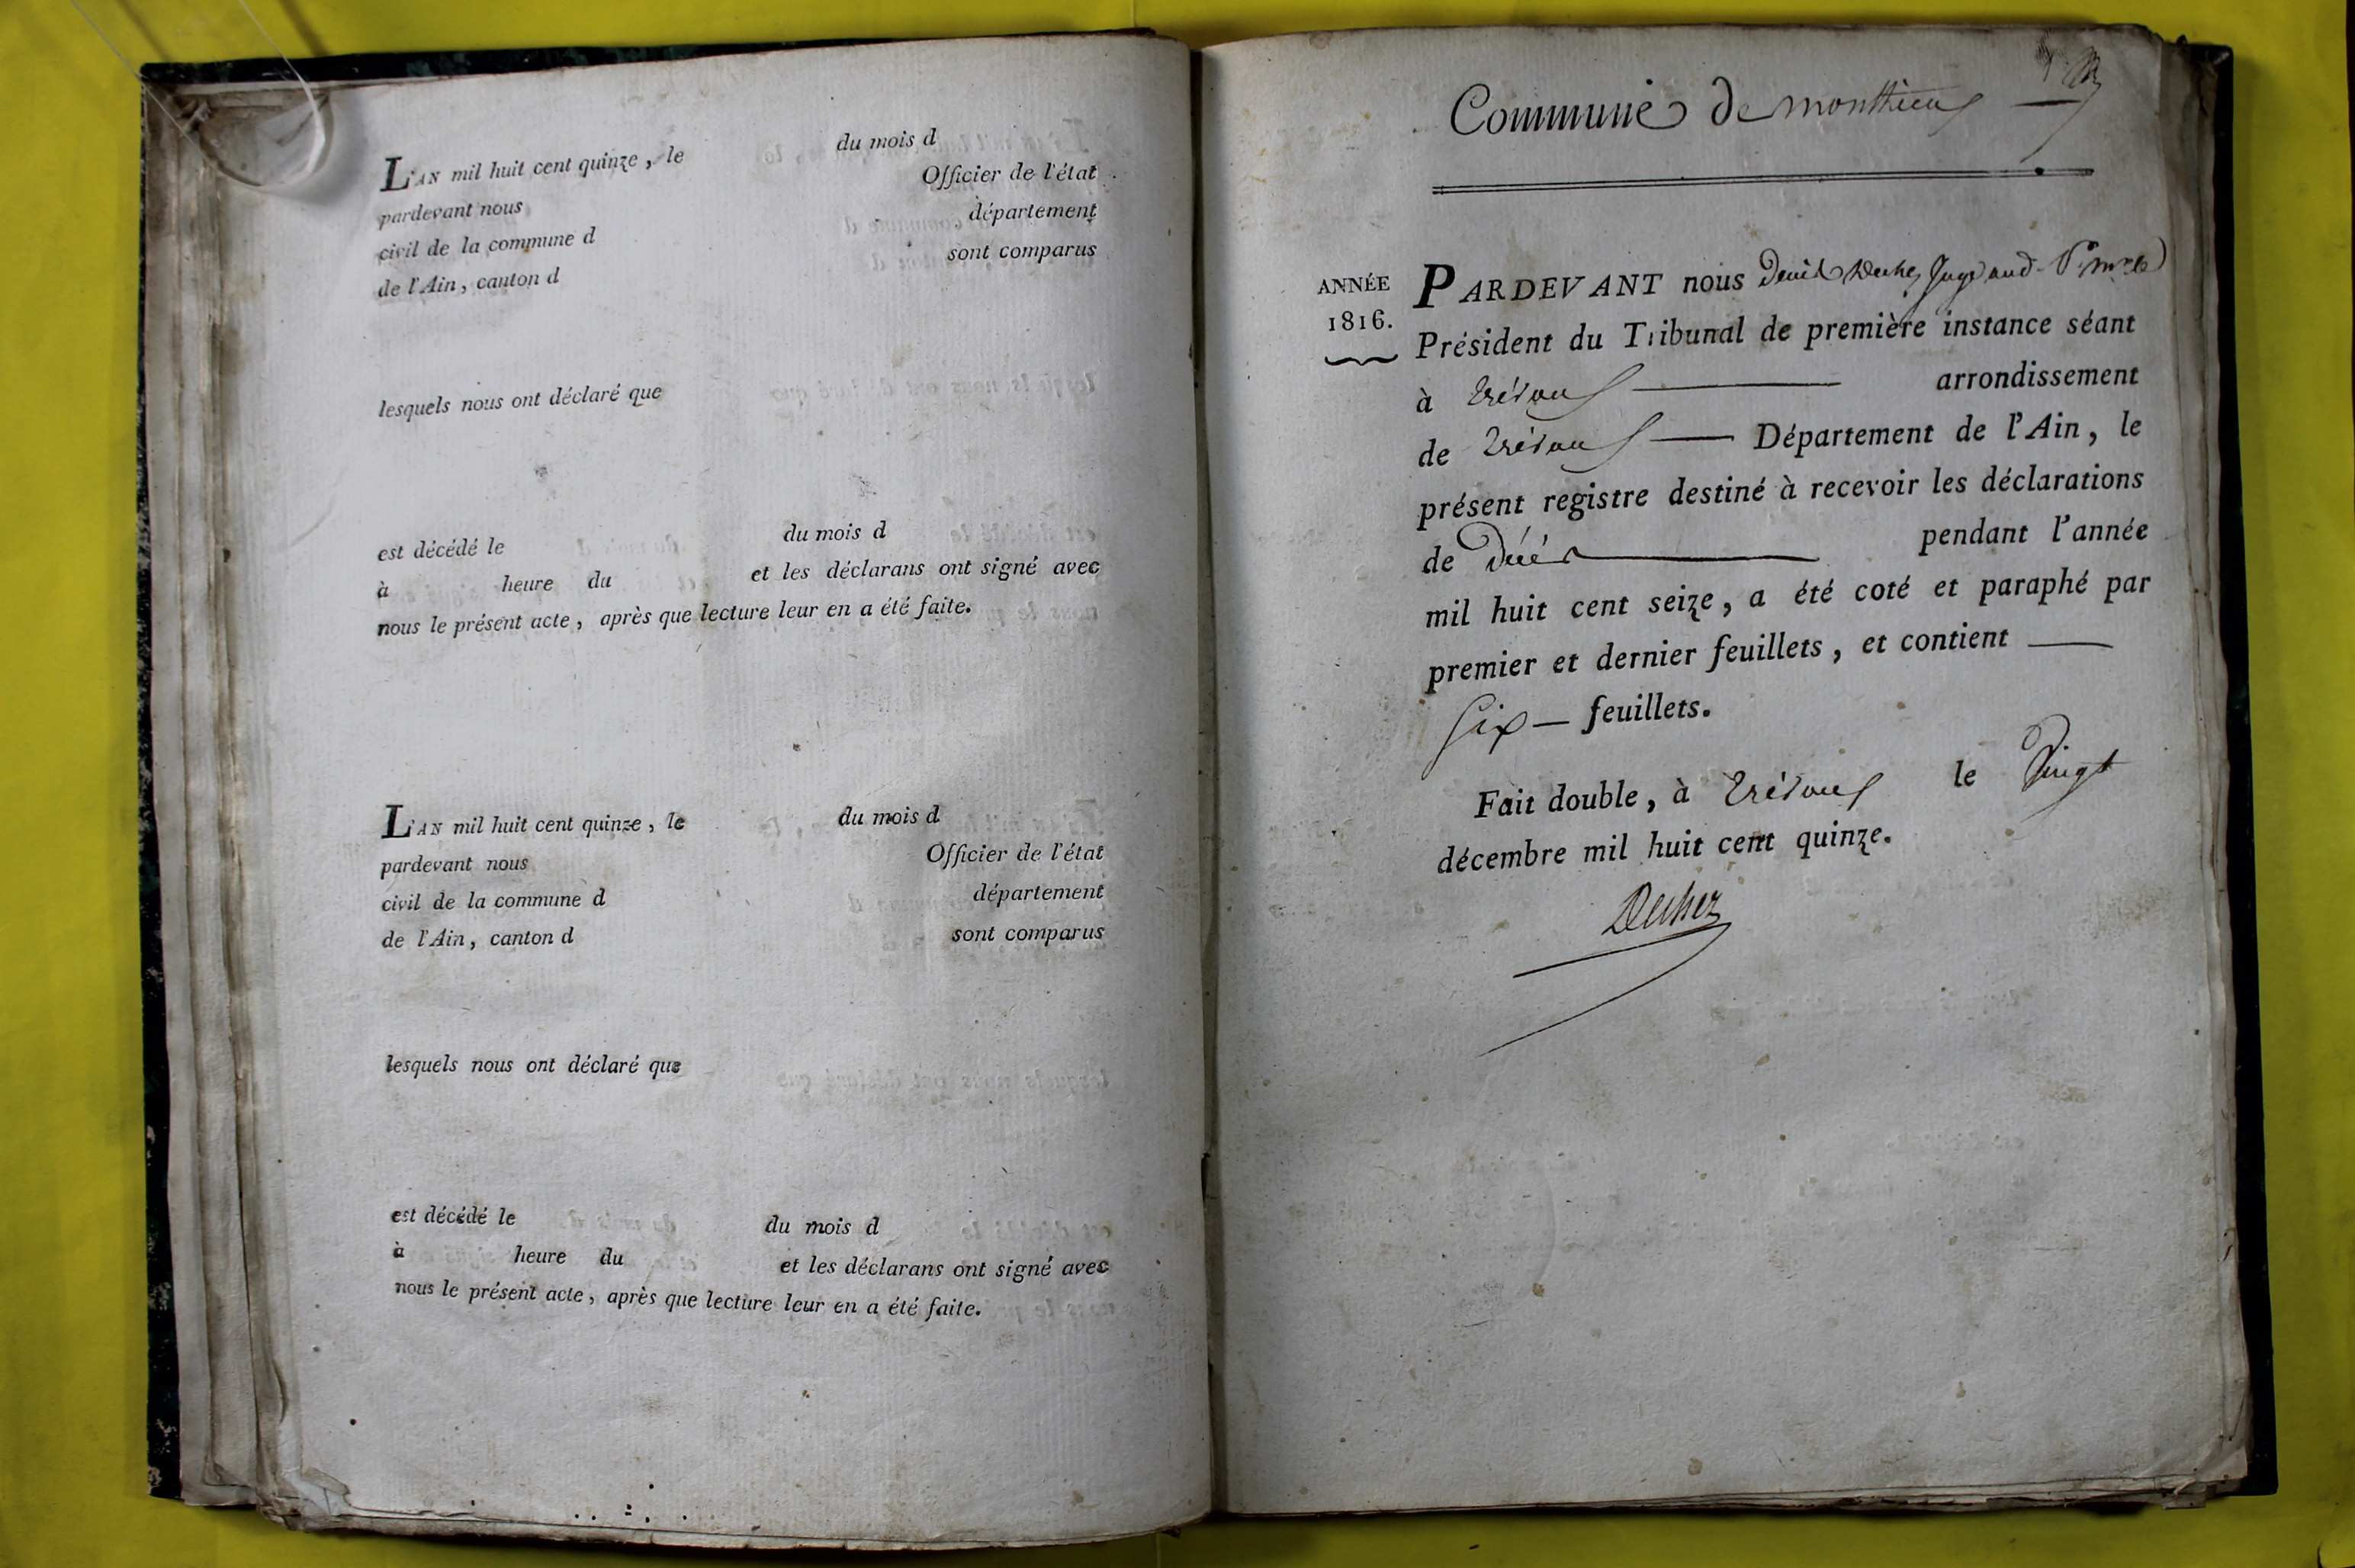 L'AN mil huit cent quinze, le du mois d
pardevant nous Officier de l'état
civil de la commune d département
de l'Ain, canton d sont comparus
lesquels nous ont déclaré que
est décédé le du mois d
à heure du et les déclarans ont signé avec
nous le présent acte, après que lecture leur en a été faite.
L'AN mil huit cent quinze, le du mois d
pardevant nous Officier de l'état
civil de la commune d département
de l'Ain, canton d sont comparus
lesquels nous ont déclaré que
est décédé le du mois d
à heure du et les déclarans ont signé avec
nous le présent acte, après que lecture leur en a été faite.
Commune de monthieux
ANNÉE
1816.
PARDEVANT nous Juge aud.
Président du Tribunal de première instance séant
à trévoux arrondissement
de trévoux Département de l'Ain, le
présent registre destiné à recevoir les déclarations
de Décès pendant l'année
mil huit cent seize, a été coté et paraphé par
premier et dernier feuillets, et contient
Six feuillets.
Fait double, à trévoux le Vingt
décembre mil huit cent quinze.